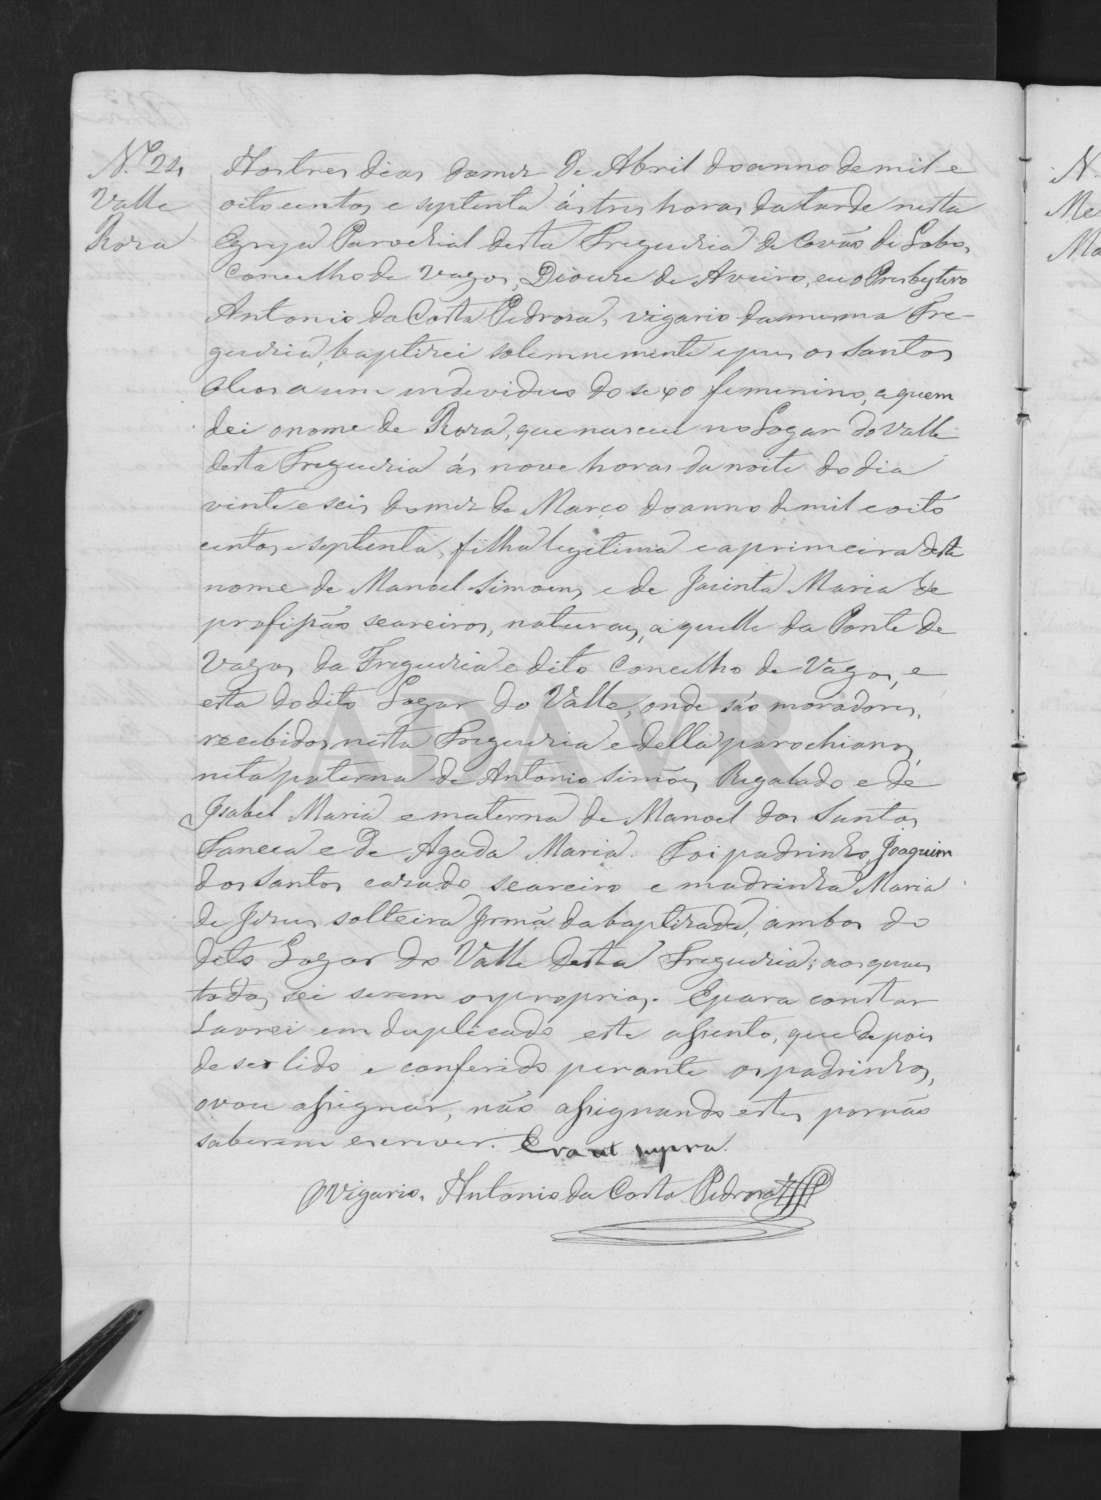 Nº 24
Valle
Roza
Aos tres dias do mez de Abril do anno de mil e
oito centos e septenta ás tres horas da tarde nesta
Egreja Parochial desta Freguezia de Covão de Lobo,
Concelho de Vagos, Diocese de Aveiro, eu o Presbytero
Antonio da Costa Pedroza, vigario da mesma Fre-
guezia, baptizei solemnemente e puz os Santos
oleos a um individuo do sexo femenino, a quem
dei o nome de Roza, que nasceu no Logar do Valle
desta Freguezia ás nove horas da noite do dia
vinte e seis do mez de Março do anno de mil e oito
centos e septenta, filha legitima e a primeira deste
nome de Manoel Simoens e de Jacinta Maria de
profissão seareiros, naturaes, aquelle da Ponte de
Vagos da Freguezia e dito Concelho de Vagos, e
esta do dito Logar do Valle, onde são moradores,
recebidos nesta Freguezia e della parochianos,
neta paterna de Antonio Simões Regalado e de
Isabel Maria e materna de Manoel dos Santos
Faneca e de Agada Maria. Foi padrinho, Joaquim
dos Santos cazado, seareiro e madrinha Maria
de Jezus solteira Irmã da baptizada, ambos do
dito Logar do Valle desta Freguezia; aos quaes
todos sei serem os proprios. E para constar
Lavrei em duplicado este assento, que depois
de ser lido e conferido perante os padrinhos,
o vou assignar, não assignando estes por não
saberem escrever. Era ut supra.
O Vigario, Antonio da Costa Pedroza
N.
Me
Ma
ADAVR